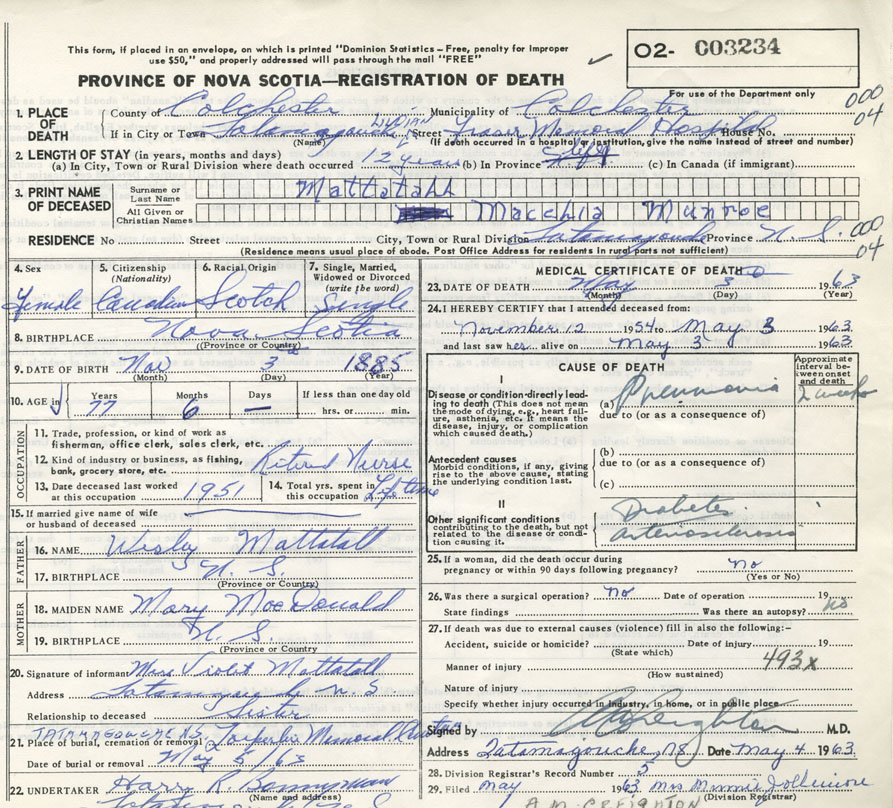 This form, if placed in an envelope, on which is printed "Dominion Statistics - Free, penalty for improper
use $50," and properly addressed will pass through the mail "FREE"
PROVINCE OF NOVA SCOTIA—REGISTRATION OF DEATH
O2- C03234
For use of the Department only
000
04
1. PLACE OF DEATH
County of Colchester Municipality of Colchester
If in City or Town Tatamagouche Street Fraser Memorial Hospital House No.
(Name) (If death occurred in a hospital or institution, give the name instead of street and number)
2. LENGTH OF STAY (in years, months and days)
(a) In City, Town or Rural Division where death occurred 12 years (b) In Province (c) In Canada (if immigrant)
3. PRINT NAME OF DECEASED
Surname or Last Name Mattatahh
All Given or Christian Names Macchia Munroe
RESIDENCE No Street City, Town or Rural Division Tatamagouche Province N. S.
000
04
(Residence means usual place of abode. Post Office Address for residents in rural parts not sufficient)
4. Sex Female
5. Citizenship (Nationality) Canadian
6. Racial Origin Scotch
7. Single, Married, Widowed or Divorced (write the word) Single
8. BIRTHPLACE Nova Scotia
(Province or Country)
9. DATE OF BIRTH Nov 3 1885
(Month) (Day) (Year)
10. AGE in Years 77 Months 6 Days — If less than one day old hrs. or min.
OCCUPATION
11. Trade, profession, or kind of work as fisherman, office clerk, sales clerk, etc.
12. Kind of industry or business, as fishing, bank, grocery store, etc. Retired Nurse
13. Date deceased last worked at this occupation 1951
14. Total yrs. spent in this occupation Life time
15. If married give name of wife or husband of deceased
FATHER
16. NAME Wesley Mattatall
17. BIRTHPLACE N. S.
(Province or Country)
MOTHER
18. MAIDEN NAME Mary MacDonald
19. BIRTHPLACE N. S.
(Province or Country
20. Signature of informant Miss Violet Mattatall
Address Tatamagouche N. S
Relationship to deceased Sister
TATAMAGOUCHE NS.
21. Place of burial, cremation or removal Memorial
Date of burial or removal May 5/63
22. UNDERTAKER Harry R. Bonnyman
(Name and address)
MEDICAL CERTIFICATE OF DEATH
23. DATE OF DEATH May 3 1963
(Month) (Day) (Year)
24. I HEREBY CERTIFY that I attended deceased from:
November 12 1954 to May 3 1963
and last saw her alive on May 3 1963
CAUSE OF DEATH
Approximate interval between onset and death
I
Disease or condition directly leading to death (This does not mean the mode of dying, e.g., heart failure, asthenia, etc. It means the disease, injury, or complication which caused death.)
(a) Pneumonia 2 weeks
due to (or as a consequence of)
Antecedent causes
Morbid conditions, if any, giving rise to the above cause, stating the underlying condition last.
(b)
due to (or as a consequence of)
(c)
II
Other significant conditions
contributing to the death, but not related to the disease or condition causing it.
Diabetes
Arteriosclerosis
25. If a woman, did the death occur during pregnancy or within 90 days following pregnancy? No
(Yes or No)
26. Was there a surgical operation? No Date of operation 19
State findings Was there an autopsy? No
27. If death was due to external causes (violence) fill in also the following:-
Accident, suicide or homicide? Date of injury 19
(State which)
Manner of injury 493x
(How sustained)
Nature of injury
Specify whether injury occurred in industry, in home, or in public place
Signed by Creighton M.D.
Address Tatamagouche, N.S. Date May 4 1963
28. Division Registrar's Record Number 5
29. Filed May 1963 Mrs Minnie
(Division Registrar)
A. M. CREIGHTON